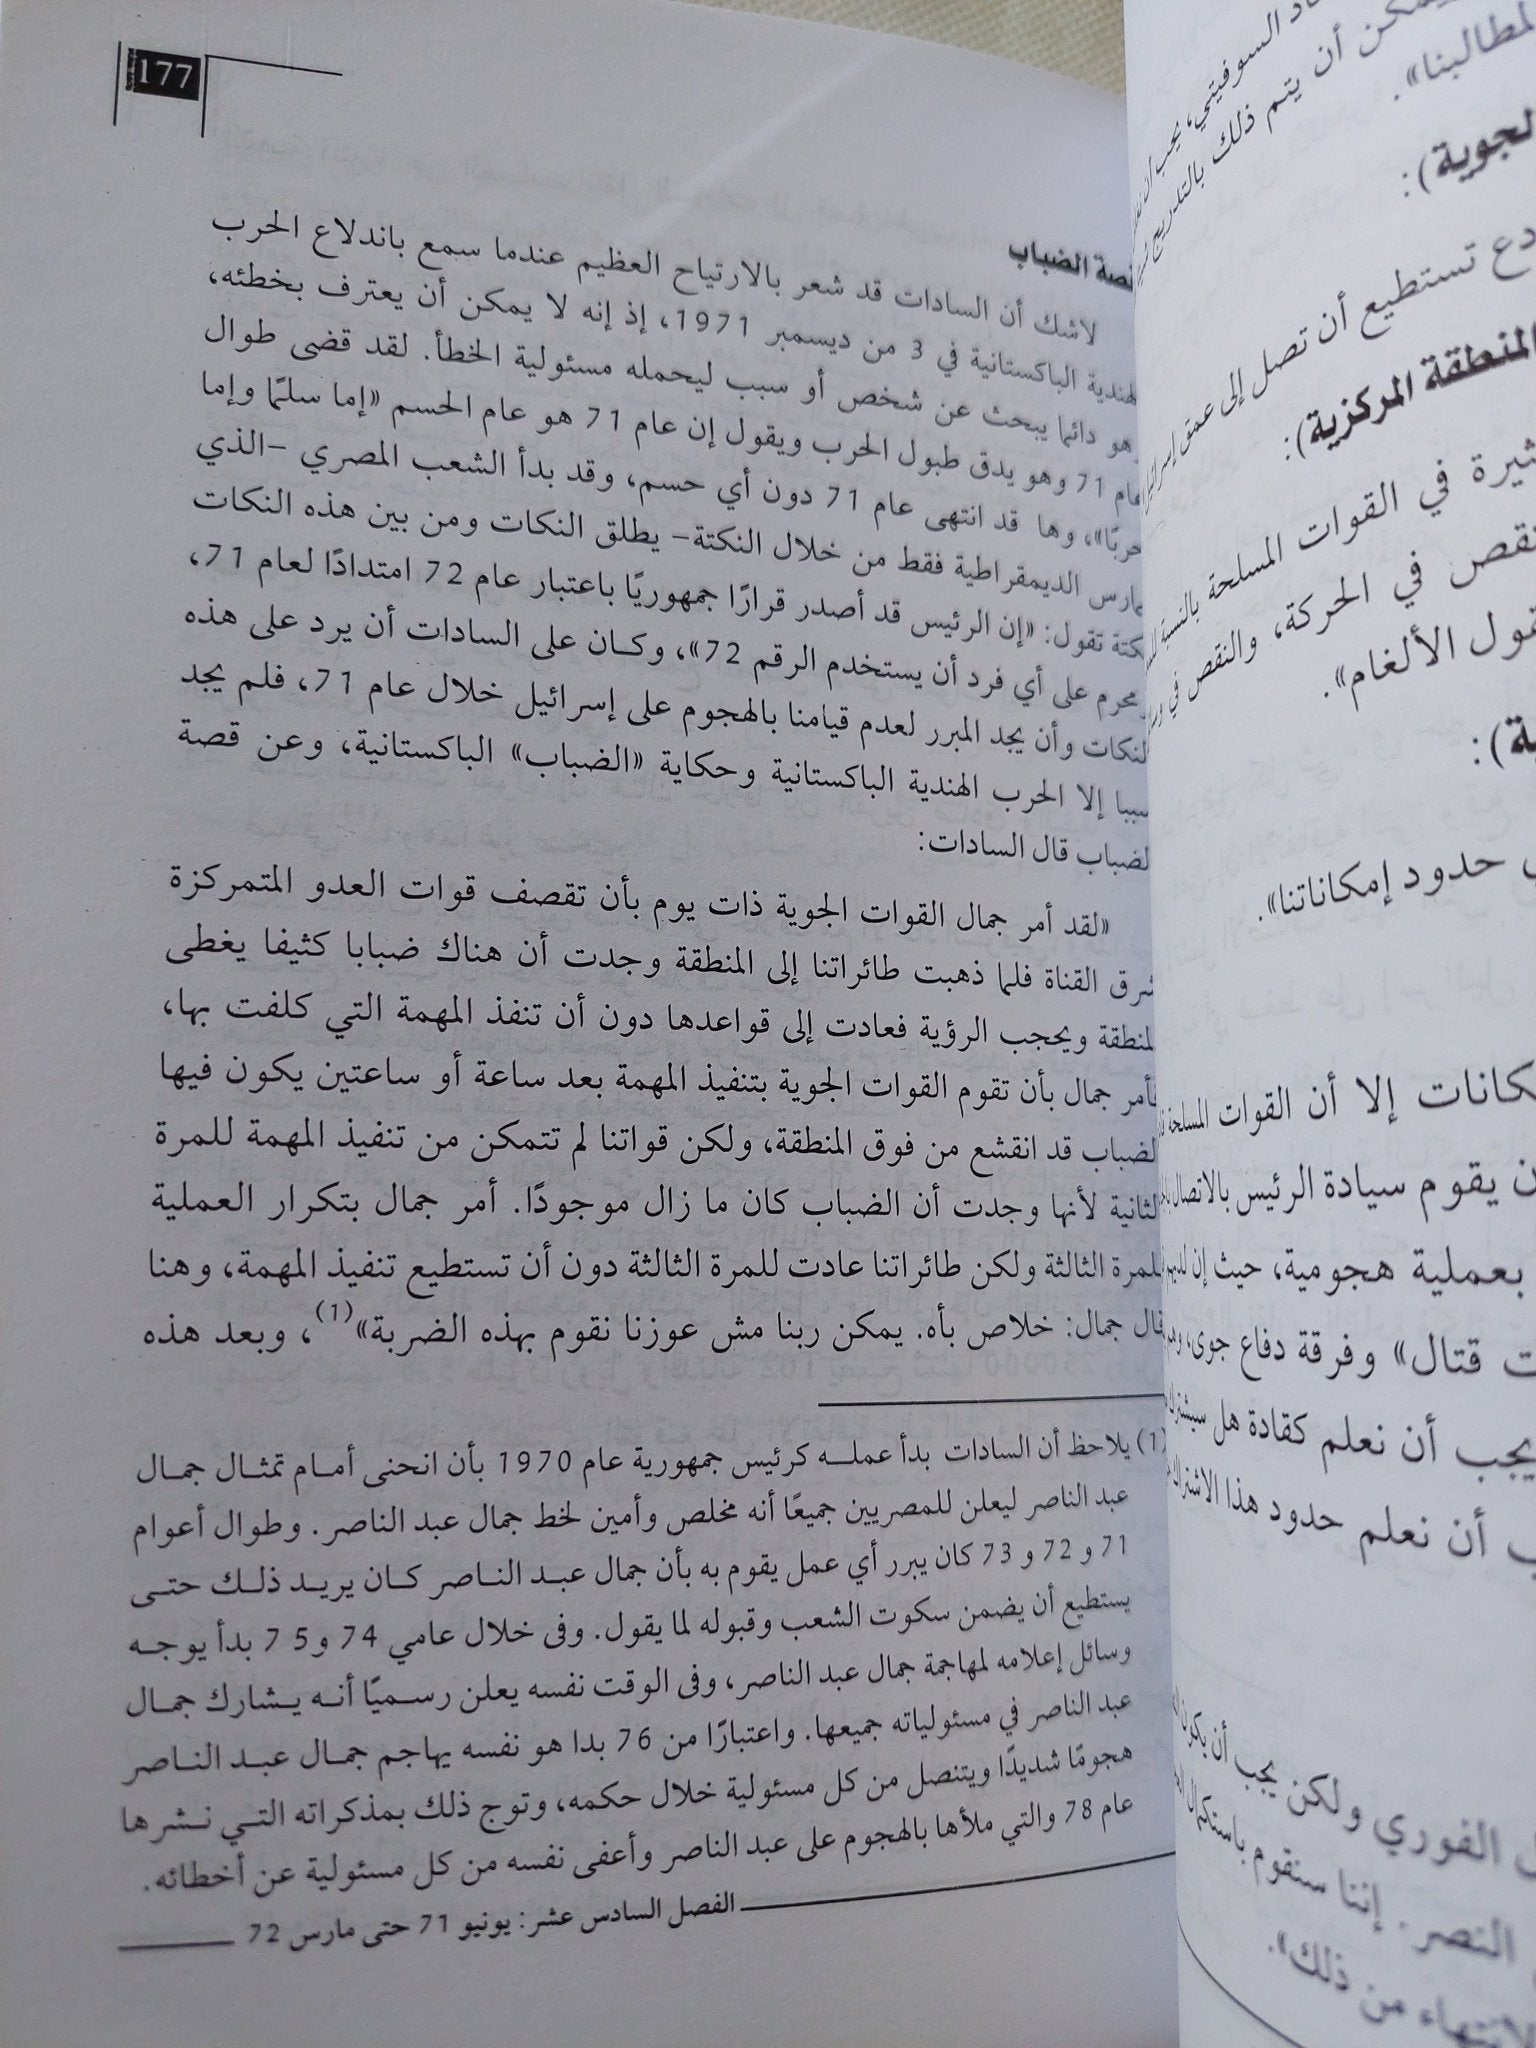 177
قصة الضباب
لاشك أن السادات قد شعر بالارتياح العظيم عندما سمع باندلاع الحرب
الهندية الباكستانية في 3 من ديسمبر 1971، إذ إنه لا يمكن أن يعترف بخطئه،
وهو دائما يبحث عن شخص أو سبب ليحمله مسئولية الخطأ. لقد قضى طوال
عام 71 وهو يدق طبول الحرب ويقول إن عام 71 هو عام الحسم «إما سلمًا وإما
حربًا»، وها قد انتهى عام 71 دون أي حسم، وقد بدأ الشعب المصري -الذي
يمارس الديمقراطية فقط من خلال النكتة- يطلق النكات ومن بين هذه النكات
نكتة تقول: «إن الرئيس قد أصدر قرارًا جمهوريًا باعتبار عام 72 امتدادًا لعام 71،
ومحرم على أي فرد أن يستخدم الرقم 72»، وكان على السادات أن يرد على هذه
النكات وأن يجد المبرر لعدم قيامنا بالهجوم على إسرائيل خلال عام 71، فلم يجد
سببا إلا الحرب الهندية الباكستانية وحكاية «الضباب» الباكستانية، وعن قصة
الضباب قال السادات:
«لقد أمر جمال القوات الجوية ذات يوم بأن تقصف قوات العدو المتمركزة
شرق القناة فلما ذهبت طائراتنا إلى المنطقة وجدت أن هناك ضبابا كثيفا يغطى
المنطقة ويحجب الرؤية فعادت إلى قواعدها دون أن تنفذ المهمة التي كلفت بها،
فأمر جمال بأن تقوم القوات الجوية بتنفيذ المهمة بعد ساعة أو ساعتين يكون فيها
الضباب قد انقشع من فوق المنطقة، ولكن قواتنا لم تتمكن من تنفيذ المهمة للمرة
الثانية لأنها وجدت أن الضباب كان ما زال موجودًا. أمر جمال بتكرار العملية
للمرة الثالثة ولكن طائراتنا عادت للمرة الثالثة دون أن تستطيع تنفيذ المهمة، وهنا
قال جمال: خلاص بأه. يمكن ربنا مش عوزنا نقوم بهذه الضربة»(1)، وبعد هذه
(1) يلاحظ أن السادات بدأ عمله كرئيس جمهورية عام 1970 بأن انحنى أمام تمثال جمال
عبد الناصر ليعلن للمصريين جميعًا أنه مخلص وأمين لخط جمال عبد الناصر. وطوال أعوام
71 و 72 و 73 كان يبرر أي عمل يقوم به بأن جمال عبد الناصر كان يريد ذلك حتى
يستطيع أن يضمن سكوت الشعب وقبوله لما يقول. وفى خلال عامي 74 و75 بدأ يوجه
وسائل إعلامه لمهاجمة جمال عبد الناصر، وفى الوقت نفسه يعلن رسميًا أنه يشارك جمال
عبد الناصر في مسئولياته جميعها. واعتبارًا من 76 بدا هو نفسه يهاجم جمال عبد الناصر
هجومًا شديدًا ويتنصل من كل مسئولية خلال حكمه، وتوج ذلك بمذكراته التي نشرها
عام 78 والتي ملأها بالهجوم على عبد الناصر وأعفى نفسه من كل مسئولية عن أخطائه.
الفصل السادس عشر: يونيو 71 حتى مارس 72
السوفيتي، يجب أن
يمكن أن يتم ذلك بالتدريج
مطالبنا».
الجوية):
تستطيع أن تصل إلى عمق
المنطقة المركزية):
في القوات المسلحة بالنسبة
في الحركة، والنقص في
الألغام».
حدود إمكاناتنا».
إلا أن القوات المسلحة
يقوم سيادة الرئيس بالاتصال
بعملية هجومية، حيث إن
قتال» وفرقة دفاع جوى،
يجب أن نعلم كقادة هل سيشترك
أن نعلم حدود هذا الاشتراك
الفوري ولكن يجب أن يكون
النصر. إننا سنقوم باستكمال
من ذلك».